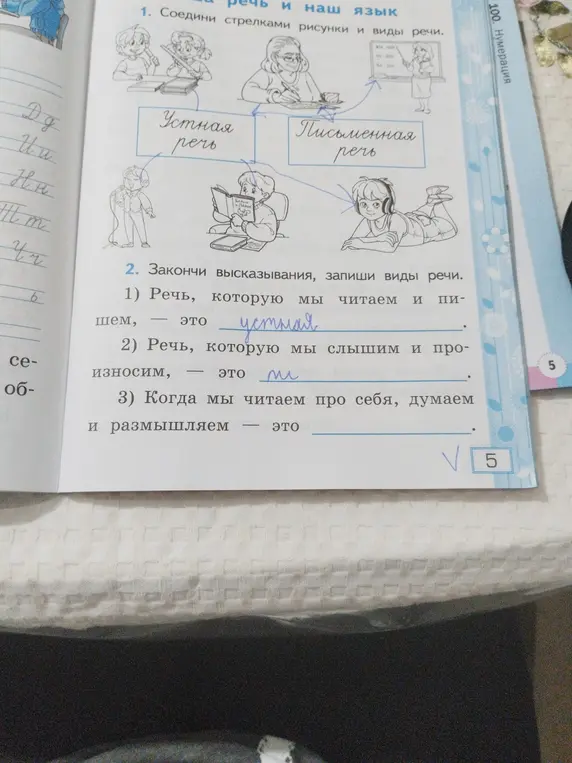 речь и наш язык
1. Соедини стрелками рисунки и виды речи.
Устная
речь
Письменная
речь
2. Закончи высказывания, запиши виды речи.
1) Речь, которую мы читаем и пи-
шем, — это устная.
2) Речь, которую мы слышим и про-
износим, — это пи.
3) Когда мы читаем про себя, думаем
и размышляем — это .
5
Дд
Ии
Нн
Тт
Чч
ь
се-
об-
100. Нумерация
5